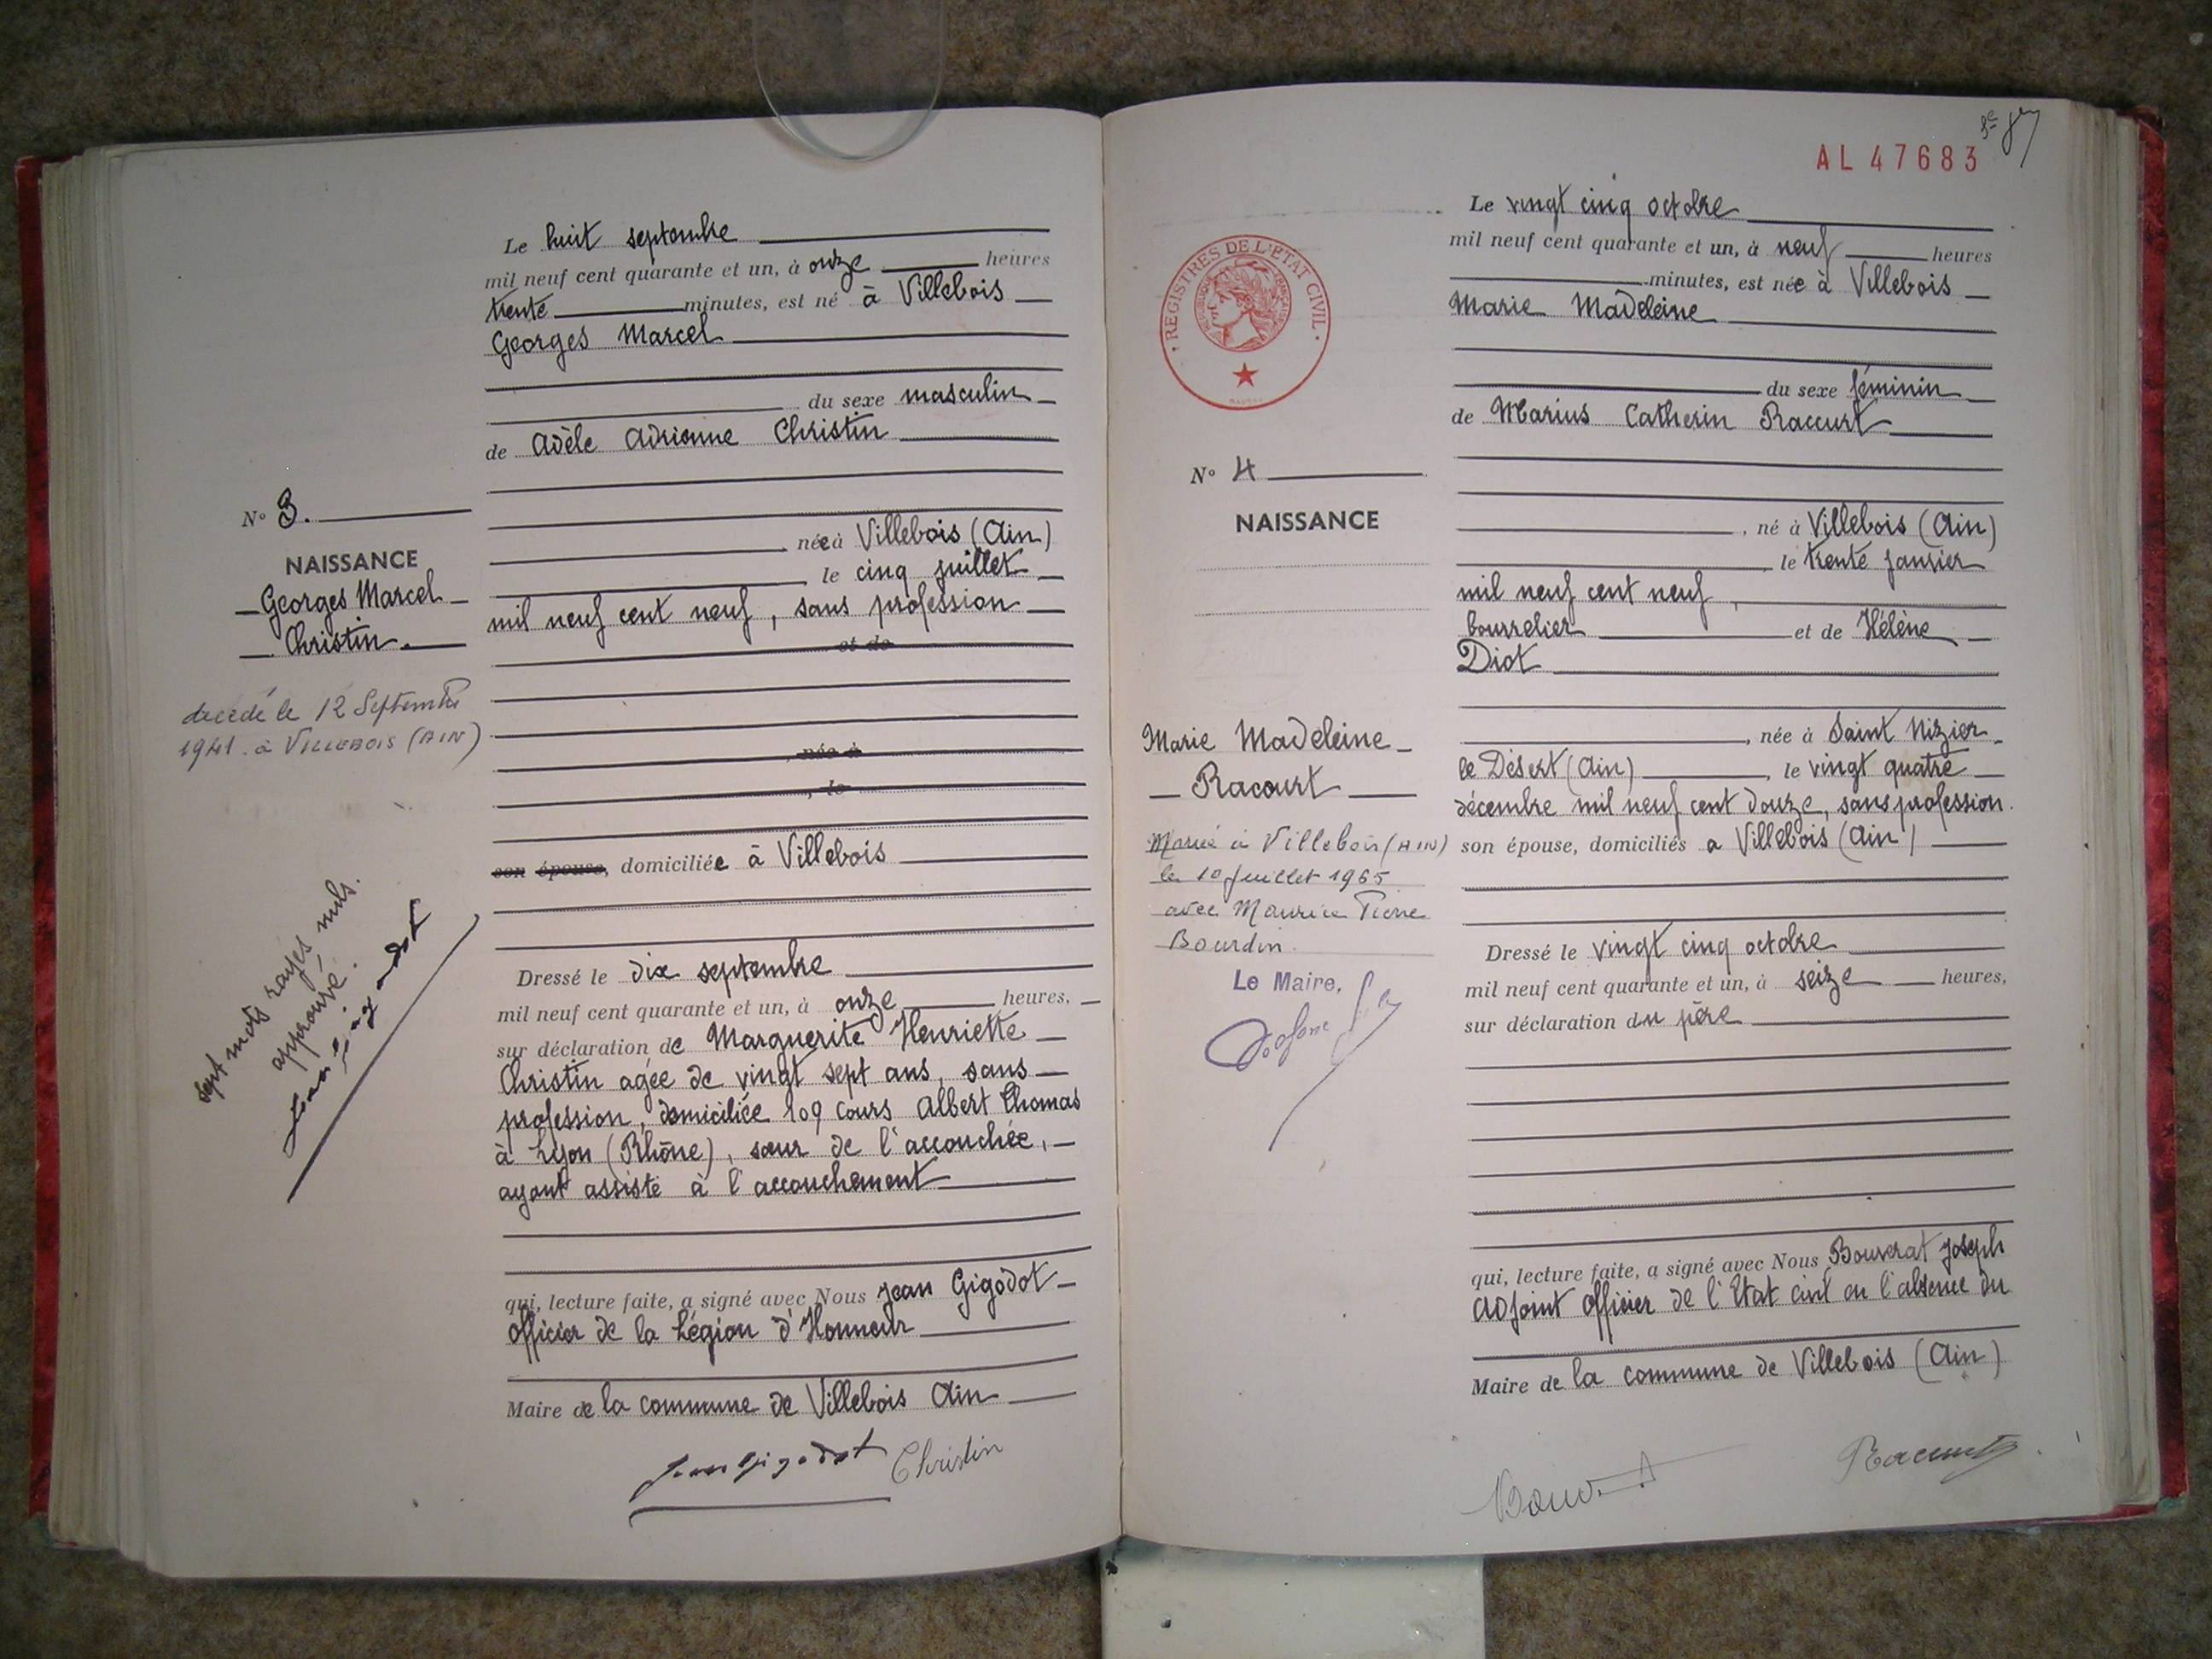 Le huit septembre
mil neuf cent quarante et un, à onze heures
trente minutes, est né à Villebois
Georges Marcel
du sexe masculin
de Adèle Adrienne Christin
née à Villebois (Ain)
le cinq juillet
mil neuf cent neuf, sans profession
et de
, née à
, le
son épouse, domiciliée à Villebois
Dressé le dix septembre
mil neuf cent quarante et un, à onze heures,
sur déclaration de Marguerite Henriette
Christin agée de vingt sept ans, sans
profession, domiciliée 109 cours Albert Thomas
à Lyon (Rhône), sœur de l'accouchée,
ayant assisté à l'accouchement
qui, lecture faite, a signé avec Nous Jean Gigodot
Officier de la Légion d'Honneur
Maire de la commune de Villebois Ain
Jean Gigodot Christin
N° 3.
NAISSANCE
Georges Marcel
Christin.
décédé le 12 Septembre
1941 à VILLEBOIS (AIN)
sept mots rayés nuls.
approuvé.
Jean Gigodot
AL 47683
REGISTRES DE L'ETAT CIVIL
N° 4
NAISSANCE
Marie Madeleine
Racourt
Mariée à Villebois (AIN)
le 10 Juillet 1965
avec Maurice Pierre
Bourdin.
Le Maire,
Le vingt cinq octobre
mil neuf cent quarante et un, à neuf heures
minutes, est née à Villebois
Marie Madeleine
du sexe féminin
de Marius Catherin Raccurt
, né à Villebois (Ain)
, le trente janvier
mil neuf cent neuf,
bourrelier et de Hélène
Diot
, née à Saint Nizier
le Désert (Ain), le vingt quatre
décembre mil neuf cent douze, sans profession.
son épouse, domiciliés à Villebois (Ain)
Dressé le vingt cinq octobre
mil neuf cent quarante et un, à seize heures,
sur déclaration du père
qui, lecture faite, a signé avec Nous Bouvrat Joseph
Adjoint Officier de l'Etat civil en l'absence du
Maire de la commune de Villebois (Ain)
Raccurt